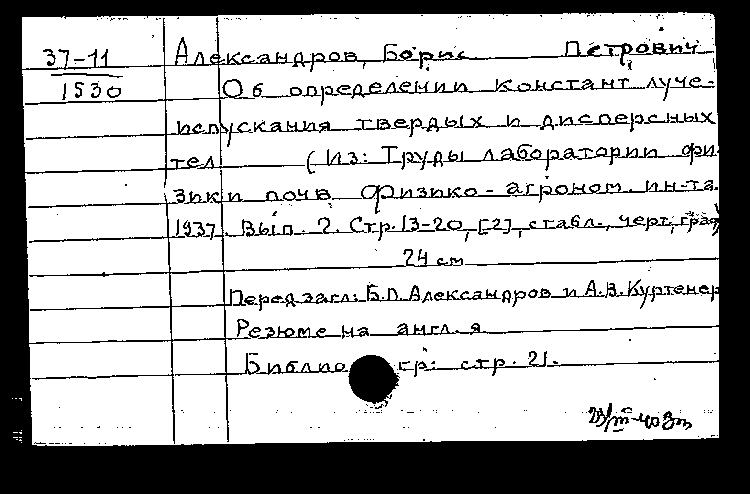 37-11 Александров, Борис Петрович
1530 Об определении констант луче-
испускания твердых и дисперсных
тел (Из: Труды лаборатории фи-
зики почв Физико-агроном. ин-та.
1937. Вып. 2. Стр. 13-20, [2], с табл., черт., граф.
24 см
Перед загл.: Б.П. Александров и А.В. Куртенер
Резюме на англ. я.
Библиогр: стр. 21.